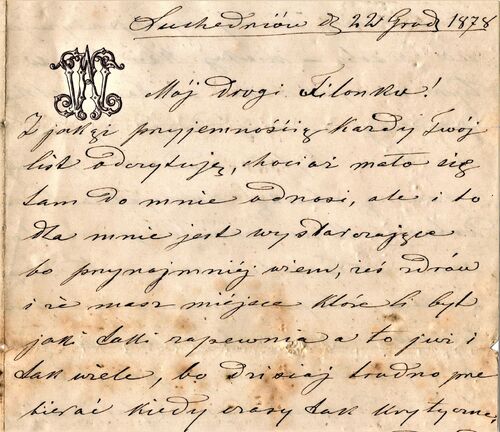 Suchedniów d 22 Grud 1878
Mój drogi Filonku!
Z jakąż przyjemnością każdy Twój
list odczytuję, chociaż mało się
tam do mnie odnosi, ale i to
dla mnie jest wystarczające
bo przynajmniéj wiem, żeś zdrów
i że masz miejsce które ci byt
jaki taki zapewnia a to już i
tak wiele, bo dzisiaj trudno prze
bierać kiedy czasy tak krytyczne,